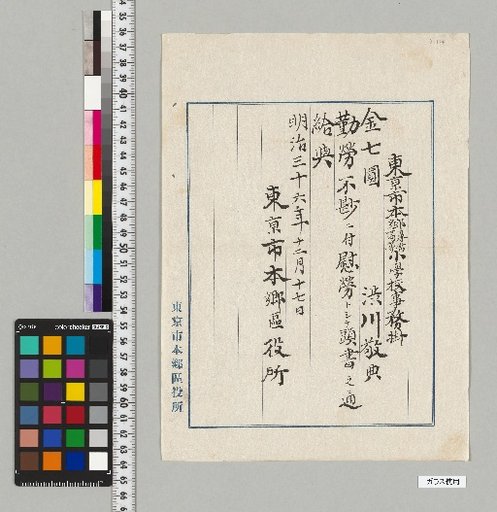 東京市本郷尋常高等小學校事務掛
渋川敬典
金七圓
勤勞不尠ニ付慰勞トシテ頭書之通
給與
明治三十六年十二月十七日
東京市本郷區役所
東京市本郷區役所
ガラス使用
colorchecker